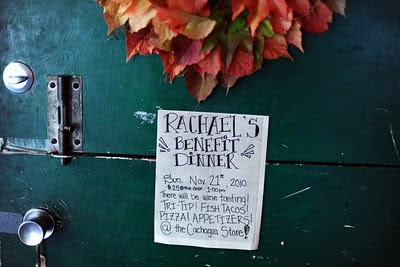 RACHAEL'S
BENEFIT
DINNER
Sun. Nov 21st, 2010
$25 @ the door 1:00pm
There will be wine tasting!
TRI-TIP! FISH TACOS!
PIZZA! APPETIZERS!
@ the Cachagua Store!